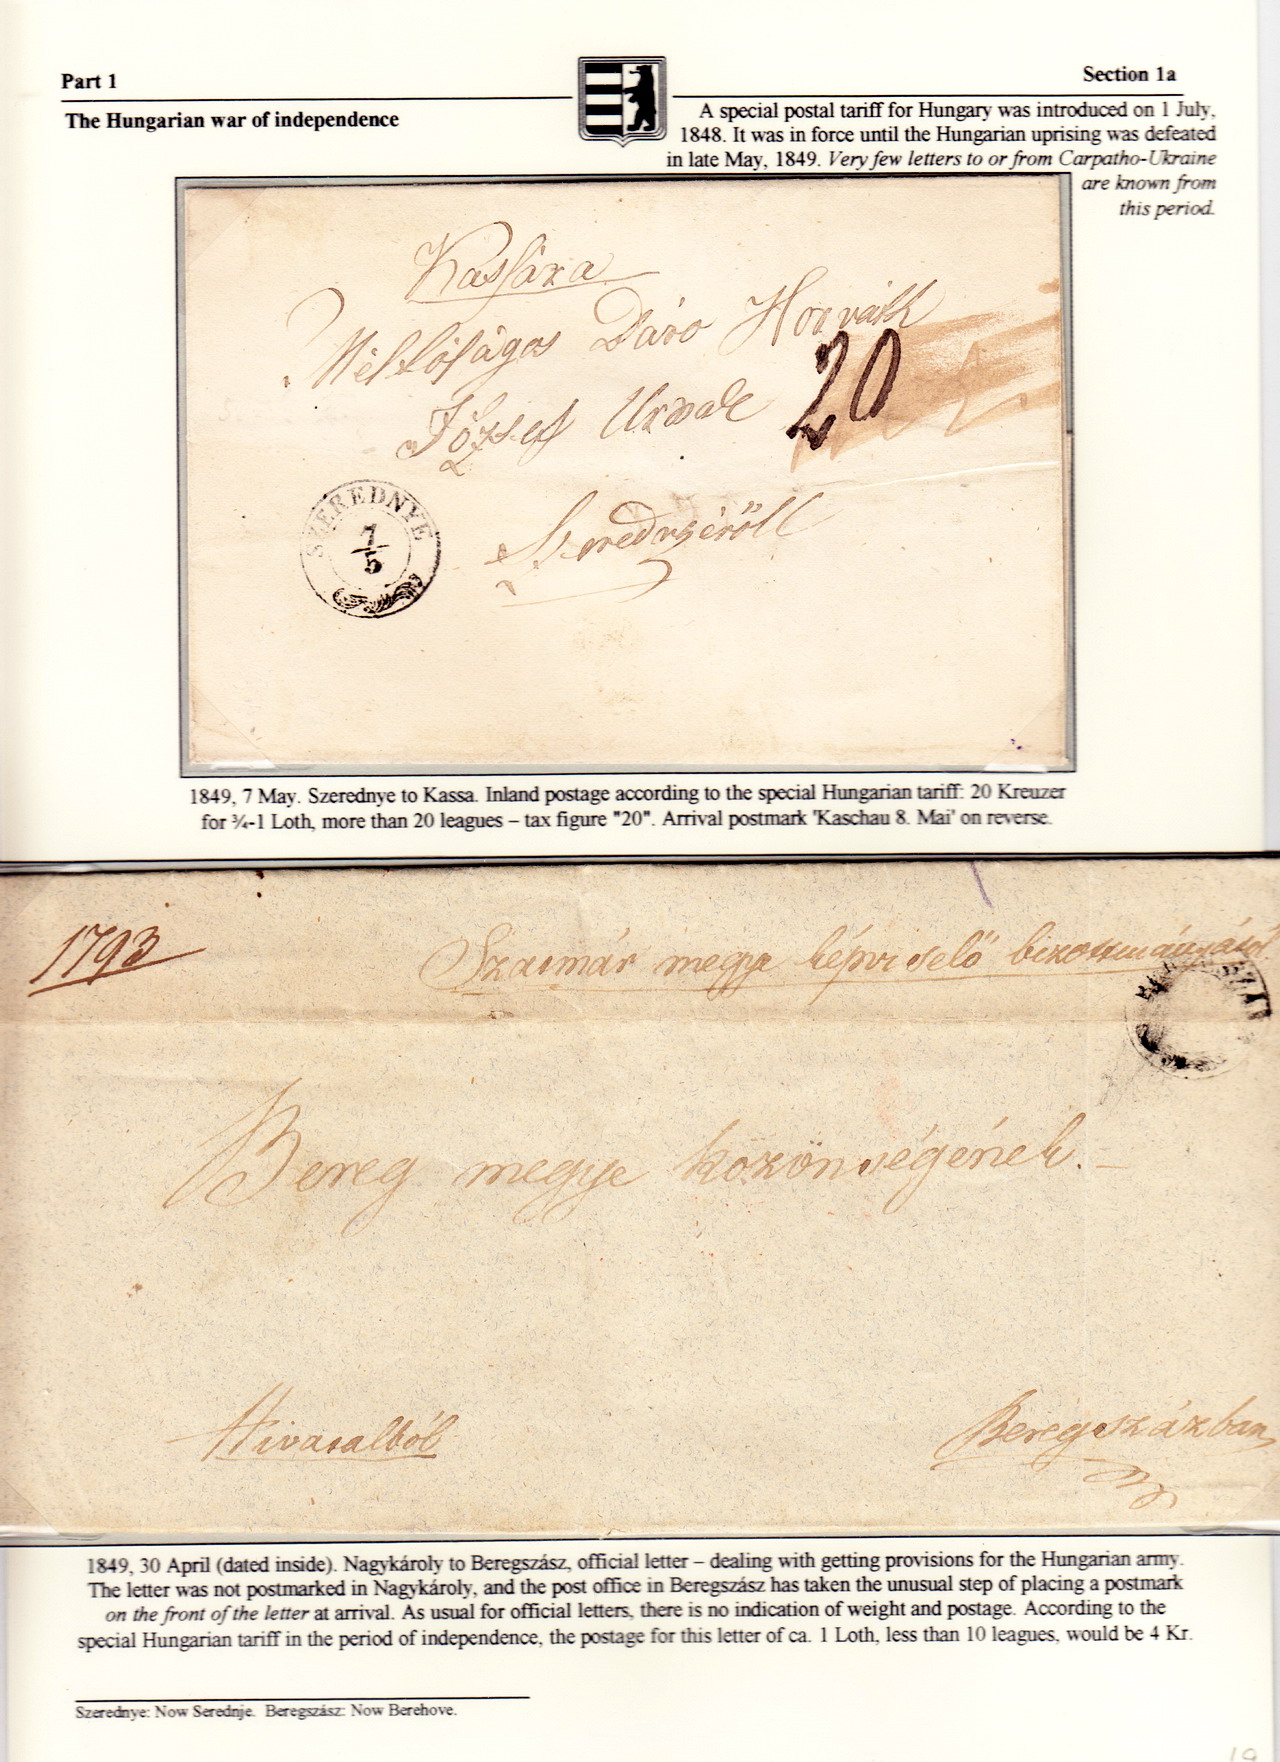 Part 1
Section 1a
The Hungarian war of independence
A special postal tariff for Hungary was introduced on 1 July,
1848. It was in force until the Hungarian uprising was defeated
in late May, 1849. Very few letters to or from Carpatho-Ukraine
are known from
this period.
Kassára
Méltóságos Báró Horváth
József Urnak
20
SZEREDNYE
7
5
1849, 7 May. Szerednye to Kassa. Inland postage according to the special Hungarian tariff: 20 Kreuzer
for ¾-1 Loth, more than 20 leagues – tax figure "20". Arrival postmark 'Kaschau 8. Mai' on reverse.
1793
Szatmár megye képviselő bizottmányától
Bereg megye közönségének.
Hivatalból
Beregszázban
1849, 30 April (dated inside). Nagykároly to Beregszász, official letter – dealing with getting provisions for the Hungarian army.
The letter was not postmarked in Nagykároly, and the post office in Beregszász has taken the unusual step of placing a postmark
on the front of the letter at arrival. As usual for official letters, there is no indication of weight and postage. According to the
special Hungarian tariff in the period of independence, the postage for this letter of ca. 1 Loth, less than 10 leagues, would be 4 Kr.
Szerednye: Now Serednje. Beregszász: Now Berehove.